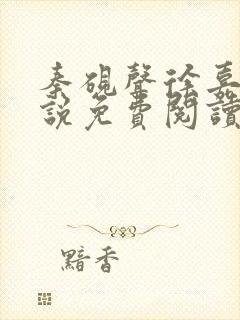 秦硯聲徐嘉
說免費閱讀
黯香